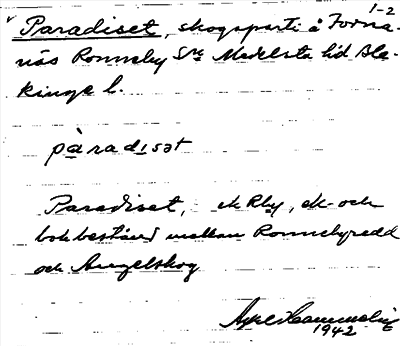 1-2
√ Paradiset, skogsparti å Torna-
näs Ronneby Sn Medelsta hd Ble-
kinge l.
pàradisət
Paradiset, ek Rby, ek- och
bokbestånd mellan Ronnebyredd
och Angelskog
Axel
1942